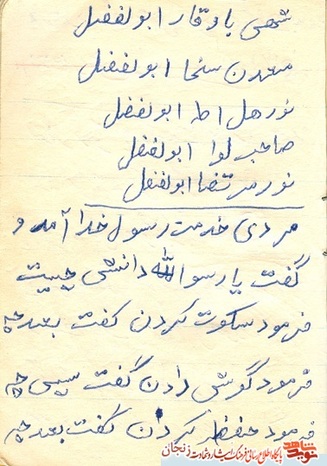 شهی با وقار ابولفضل
معدن سخا ابولفضل
نور هل اطا ابولفضل
صاحب لوا ابولفضل
نور مرتضا ابولفضل
مردی خدمت رسول خدا آمد و
گفت یا رسو الله دانش چیست
فرمود سکوت کردن گفت بعد چه
فرمود گوش دادن گفت سپس چه
فرمود حفظ کردن گفت بعد چه
نوید شاهد
پایگاه اطلاع رسانی فرهنگ ایثار و شهادت زنجان